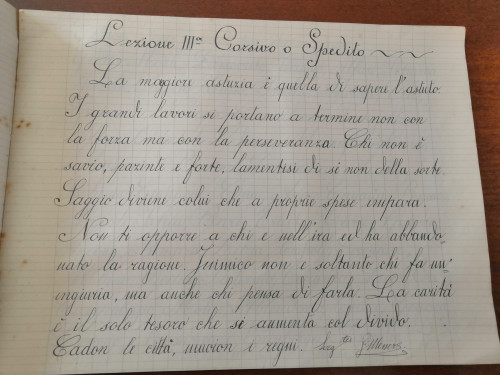 Lezione IIIª Corsivo o Spedito
La maggiore astuzia è quella di sapere l'astuto.
I grandi lavori si portano a termine non con
la forza ma con la perseveranza. Chi non è
savio, pazinte e forte, lamentisi di sè non della sorte.
Saggio diviene colui che a proprie spese impara.
Non ti opporre a chi e nell'ira ed ha abbando-
nato la ragione. Inimico non e soltanto chi fa un'
ingiuria, ma anche chi pensa di farla. La carità
è il solo tesoro che si aumenta col dividò.
Cadon le città, muoion i regni.